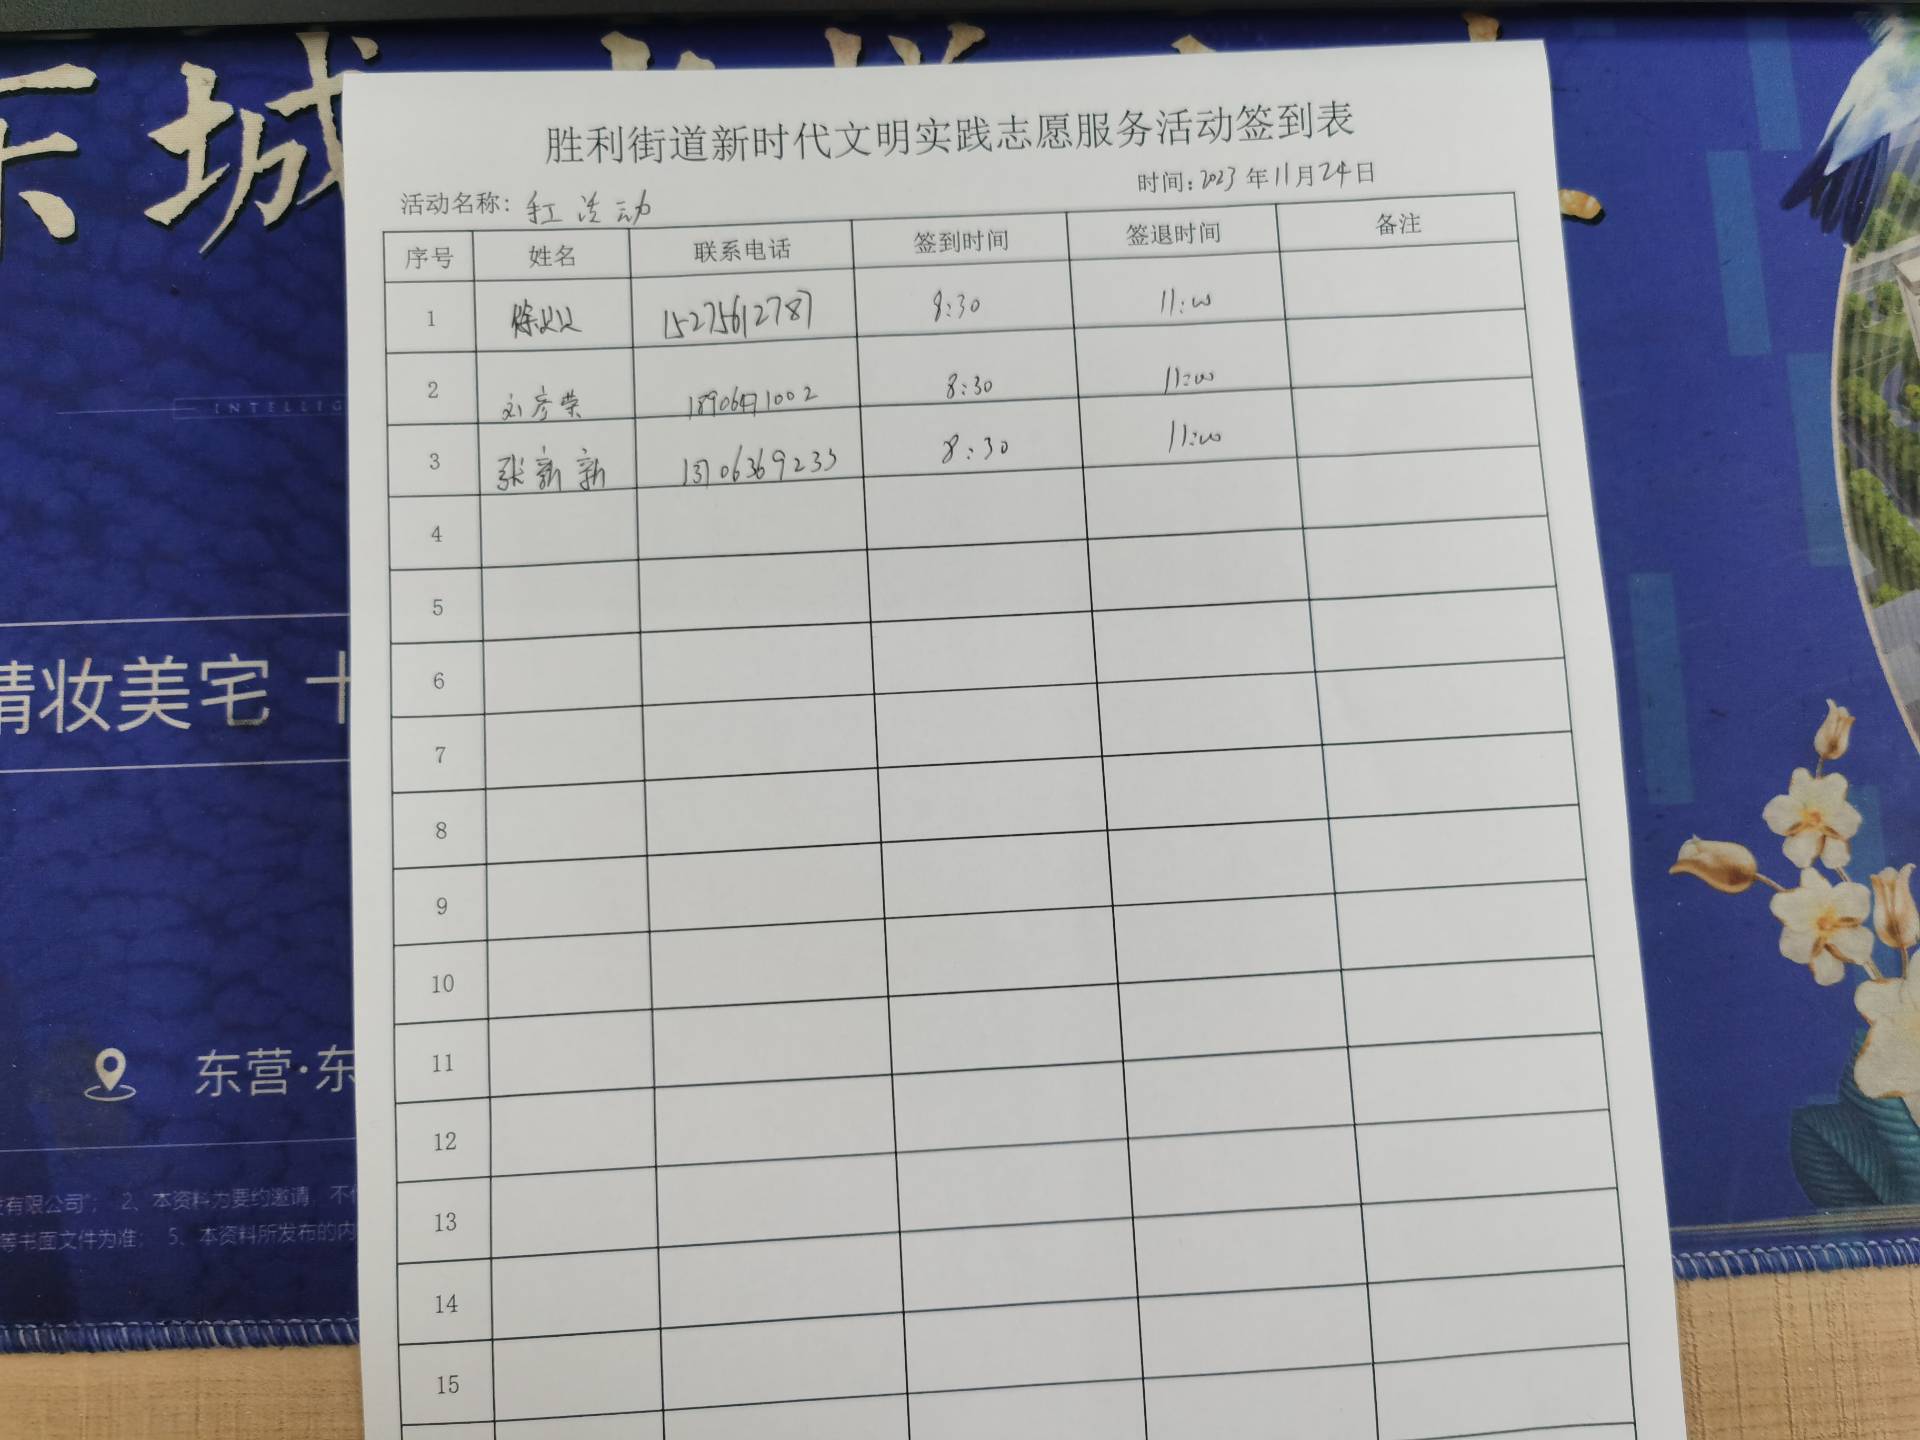 东城
INTELLIG
精妆美宅 十
东营·东
有限公司"； 2、本资料为要约邀请，不
等书面文件为准； 5、本资料所发布的内
胜利街道新时代文明实践志愿服务活动签到表
时间: 2023 年 11 月 24 日
活动名称: 红 活 动
序号 姓名 联系电话 签到时间 签退时间 备注
1 徐 15275612787 8:30 11:00
2 刘彦荣 8:30 11:00
3 张新新 13706369233 8:30 11:00
4
5
6
7
8
9
10
11
12
13
14
15